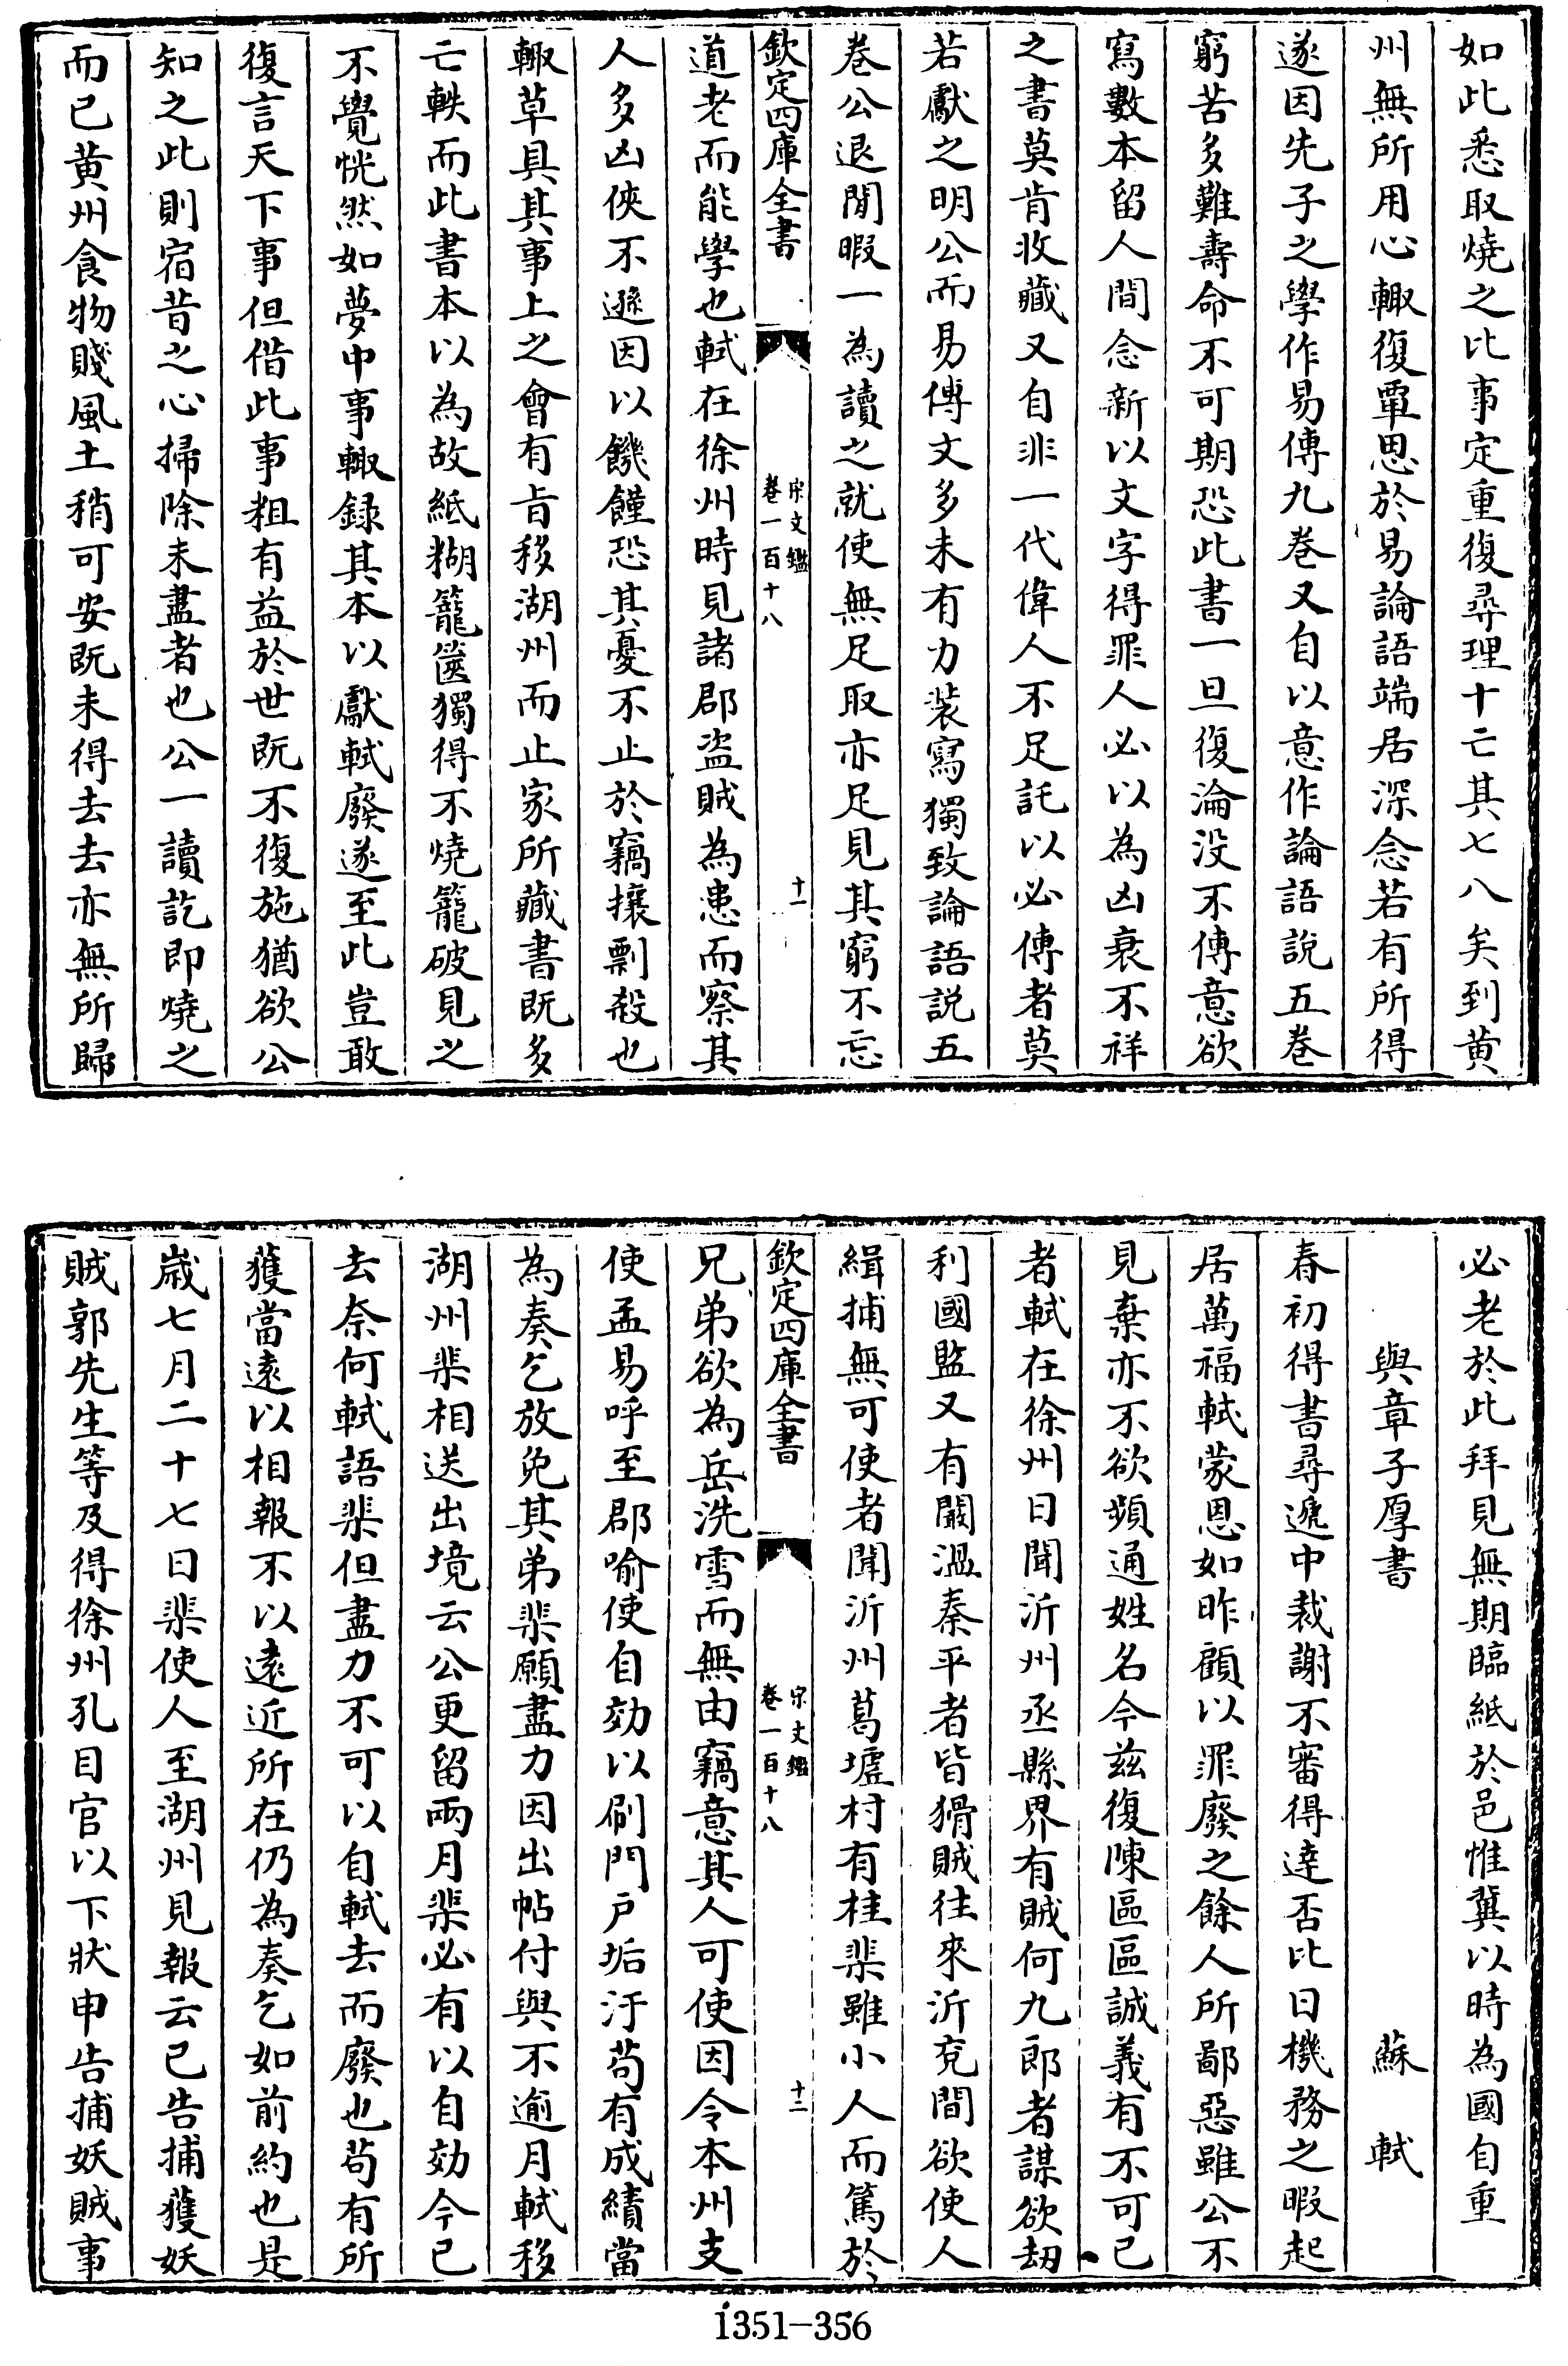 如此悉取燒之比事定重復尋理十亡其七八矣到黄
州無所用心輙復覃思於易論語端居深念若有所得
遂因先子之學作易傳九卷又自以意作論語說五卷
窮苦多難壽命不可期恐此書一旦復淪没不傳意欲
寫數本留人間念新以文字得罪人必以為凶衰不祥
之書莫肯收藏又自非一代偉人不足託以必傳者莫
若獻之明公而易傳文多未有力装寫獨致論語説五
卷公退閒暇一為讀之就使無足取亦足見其窮不忘
欽定四庫全書
宋文鑑
卷一百十八
十一
道老而能學也軾在徐州時見諸郡盜賊為患而察其
人多凶俠不遜因以饑饉恐其憂不止於竊攘剽殺也
輙草具其事上之會有旨移湖州而止家所藏書既多
亡軼而此書本以為故紙糊籠篋獨得不燒籠破見之
不覺恍然如夢中事輙録其本以獻軾廢遂至此豈敢
復言天下事但偕此事粗有益於世既不復施猶欲公
知之此則宿昔之心掃除未盡者也公一讀訖即燒之
而已黄州食物賤風土稍可安既未得去去亦無所歸
必老於此拜見無期臨紙於邑惟冀以時為國自重
與章子厚書 蘇軾
春初得書尋遞中裁謝不審得達否比日機務之暇起
居萬福軾蒙恩如昨顧以罪廢之餘人所鄙惡雖公不
見棄亦不欲頻通姓名今兹復陳區區誠義有不可已
者軾在徐州日聞沂州丞縣界有賊何九郎者謀欲劫
利國監又有闞溫秦平者皆猾賊往來沂兖間欲使人
緝捕無可使者聞沂州葛墟村有桂棐雖小人而篤於
欽定四庫全書
宋文鑑
卷一百十八
十二
兄弟欲為岳洗雪而無由竊意其人可使因令本州支
使孟易呼至郡喻使自効以刷門戶垢汙苟有成績當
為奏乞放免其弟棐願盡力因出帖付與不逾月軾移
湖州棐相送出境云公更留兩月棐必有以自効今已
去奈何軾語棐但盡力不可以自軾去而廢也苟有所
獲當遠以相報不以遠近所在仍為奏乞如前約也是
嵗七月二十七日棐使人至湖州見報云已告捕獲妖
賊郭先生等及得徐州孔目官以下狀申告捕妖賊事
1351-356